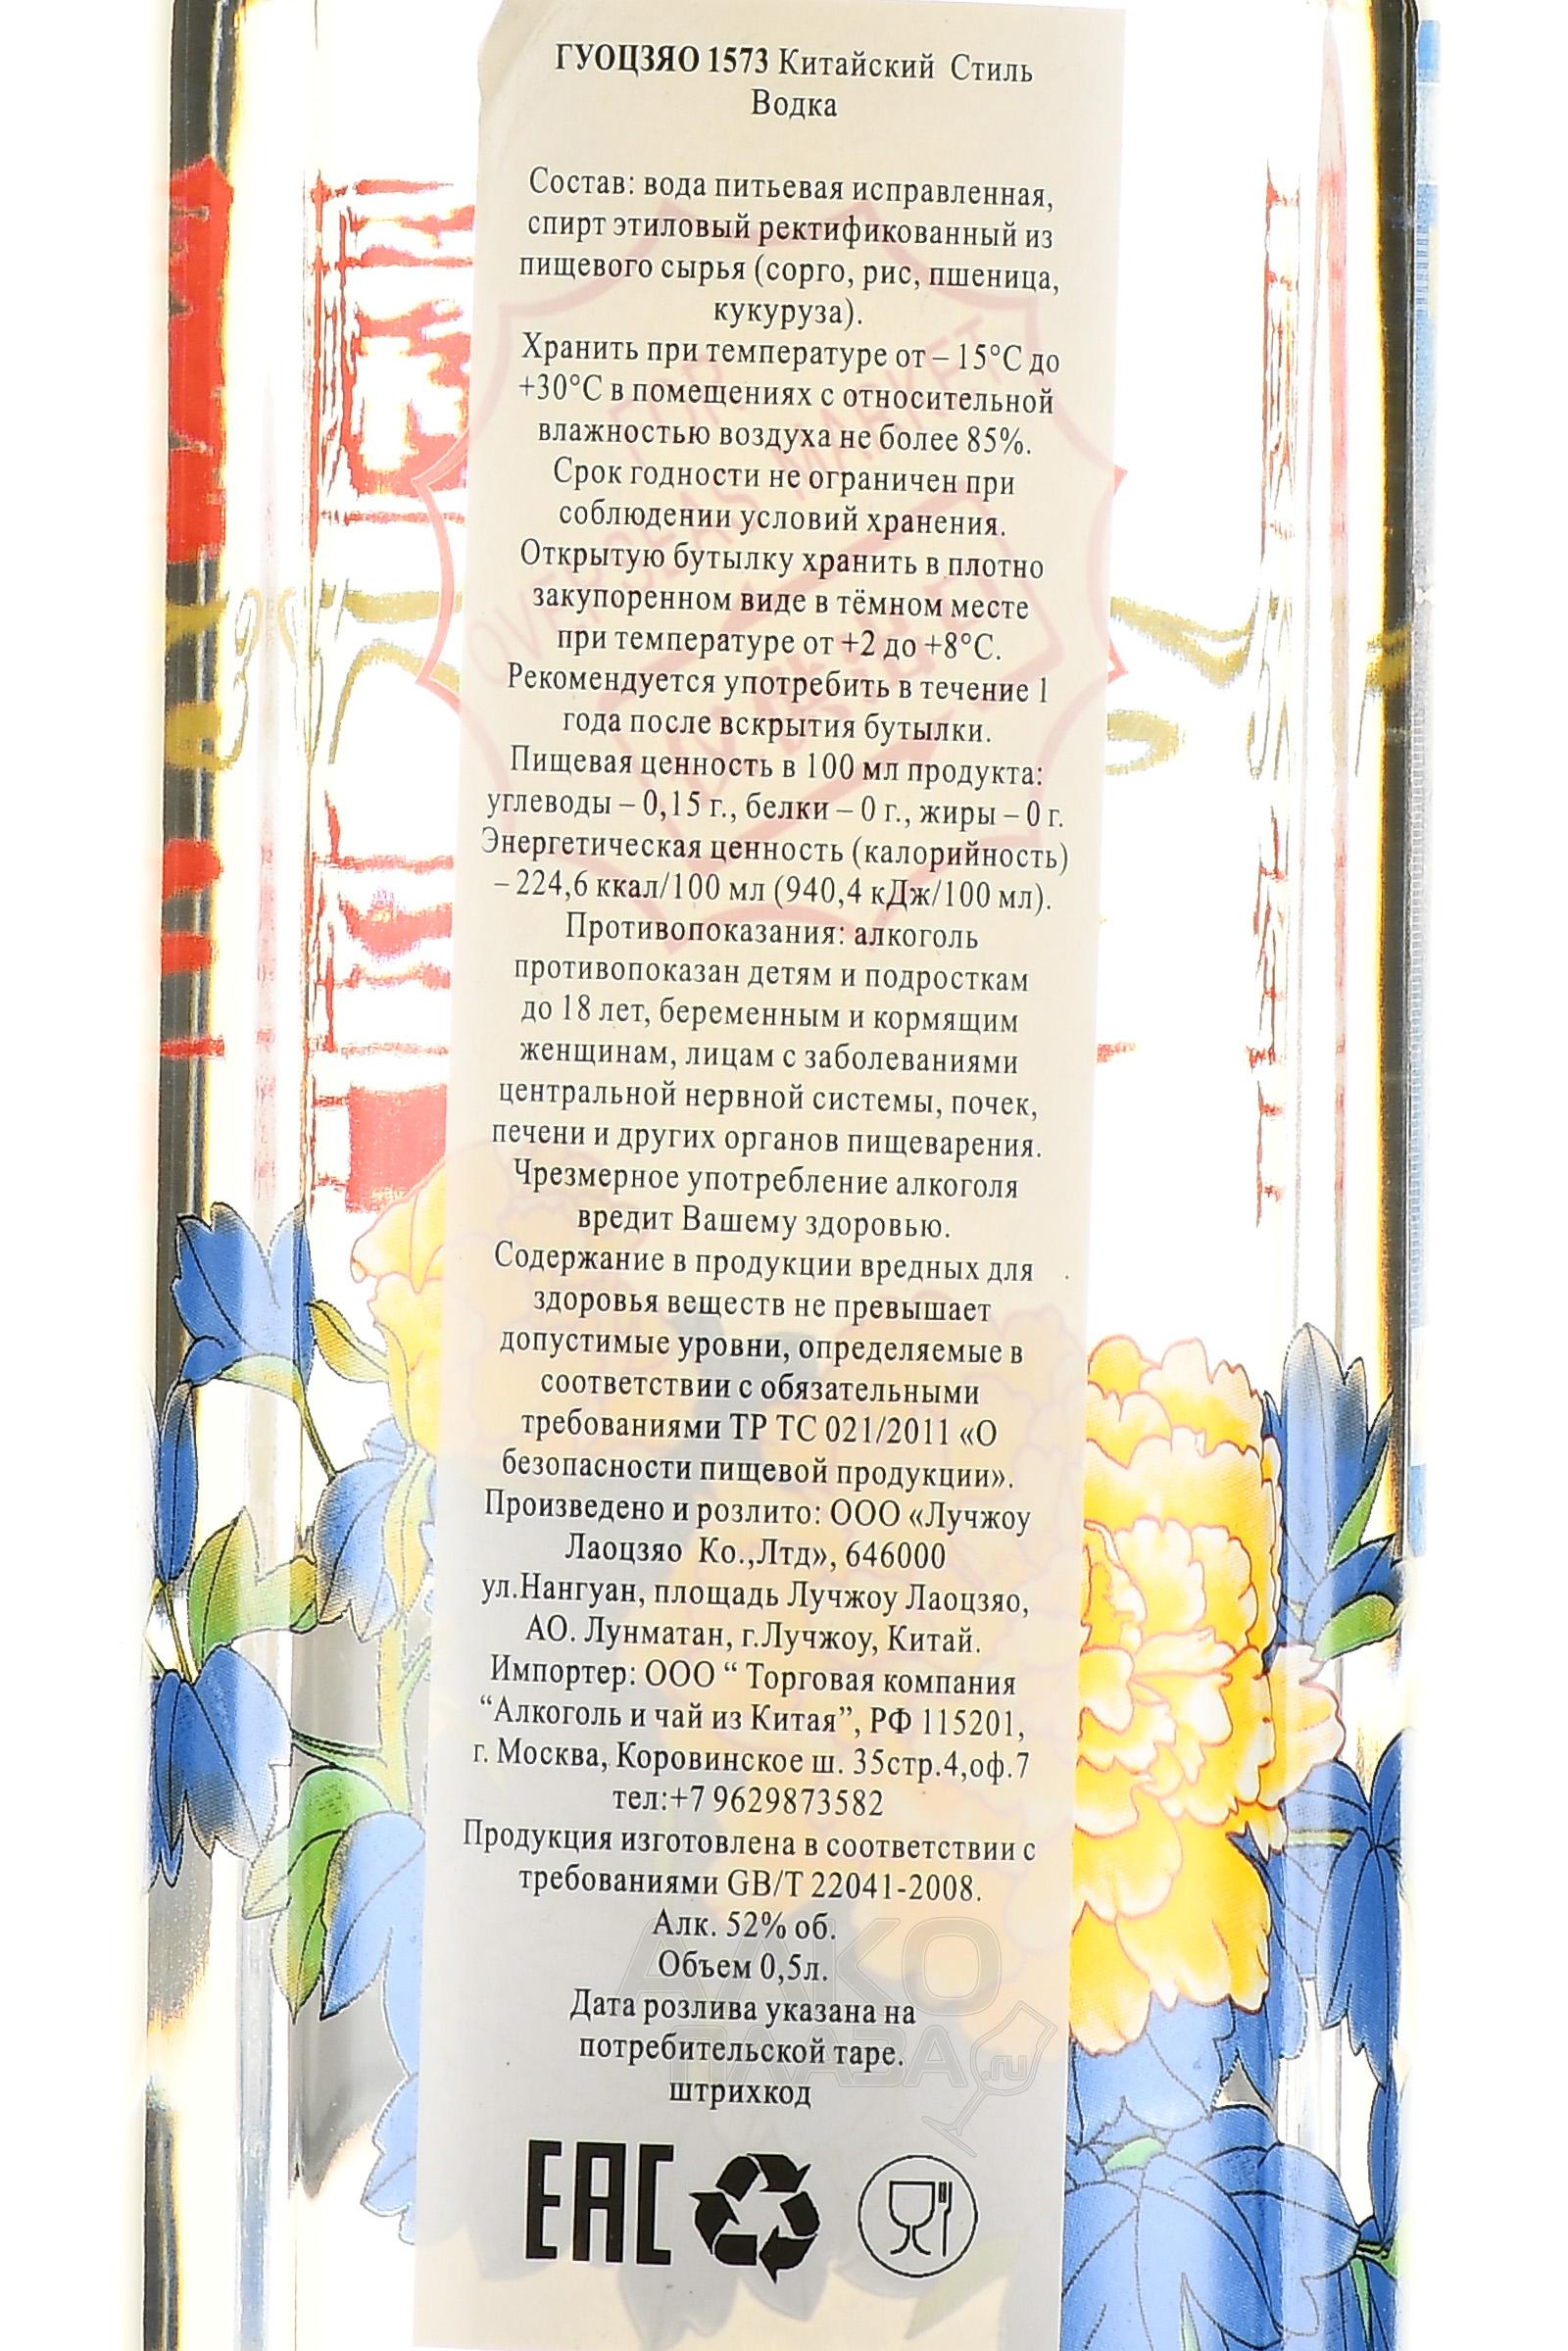 ГУОЦЗЯО 1573 Китайский Стиль
Водка
Состав: вода питьевая исправленная,
спирт этиловый ректификованный из
пищевого сырья (сорго, рис, пшеница,
кукуруза).
Хранить при температуре от – 15°С до
+30°С в помещениях с относительной
влажностью воздуха не более 85%.
Срок годности не ограничен при
соблюдении условий хранения.
Открытую бутылку хранить в плотно
закупоренном виде в тёмном месте
при температуре от +2 до +8°С.
Рекомендуется употребить в течение 1
года после вскрытия бутылки.
Пищевая ценность в 100 мл продукта:
углеводы – 0,15 г., белки – 0 г., жиры – 0 г.
Энергетическая ценность (калорийность)
– 224,6 ккал/100 мл (940,4 кДж/100 мл).
Противопоказания: алкоголь
противопоказан детям и подросткам
до 18 лет, беременным и кормящим
женщинам, лицам с заболеваниями
центральной нервной системы, почек,
печени и других органов пищеварения.
Чрезмерное употребление алкоголя
вредит Вашему здоровью.
Содержание в продукции вредных для
здоровья веществ не превышает
допустимые уровни, определяемые в
соответствии с обязательными
требованиями ТР ТС 021/2011 «О
безопасности пищевой продукции».
Произведено и розлито: ООО «Лучжоу
Лаоцзяо Ко.,Лтд», 646000
ул.Нангуан, площадь Лучжоу Лаоцзяо,
АО. Лунматан, г.Лучжоу, Китай.
Импортер: ООО “ Торговая компания
“Алкоголь и чай из Китая”, РФ 115201,
г. Москва, Коровинское ш. 35стр.4,оф.7
тел:+7 9629873582
Продукция изготовлена в соответствии с
требованиями GB/T 22041-2008.
Алк. 52% об.
Объем 0,5л.
Дата розлива указана на
потребительской таре.
штрихкод
EAC
FOR
OVERSEAS MARKET
АЛКО
ПЛАЗА.ru